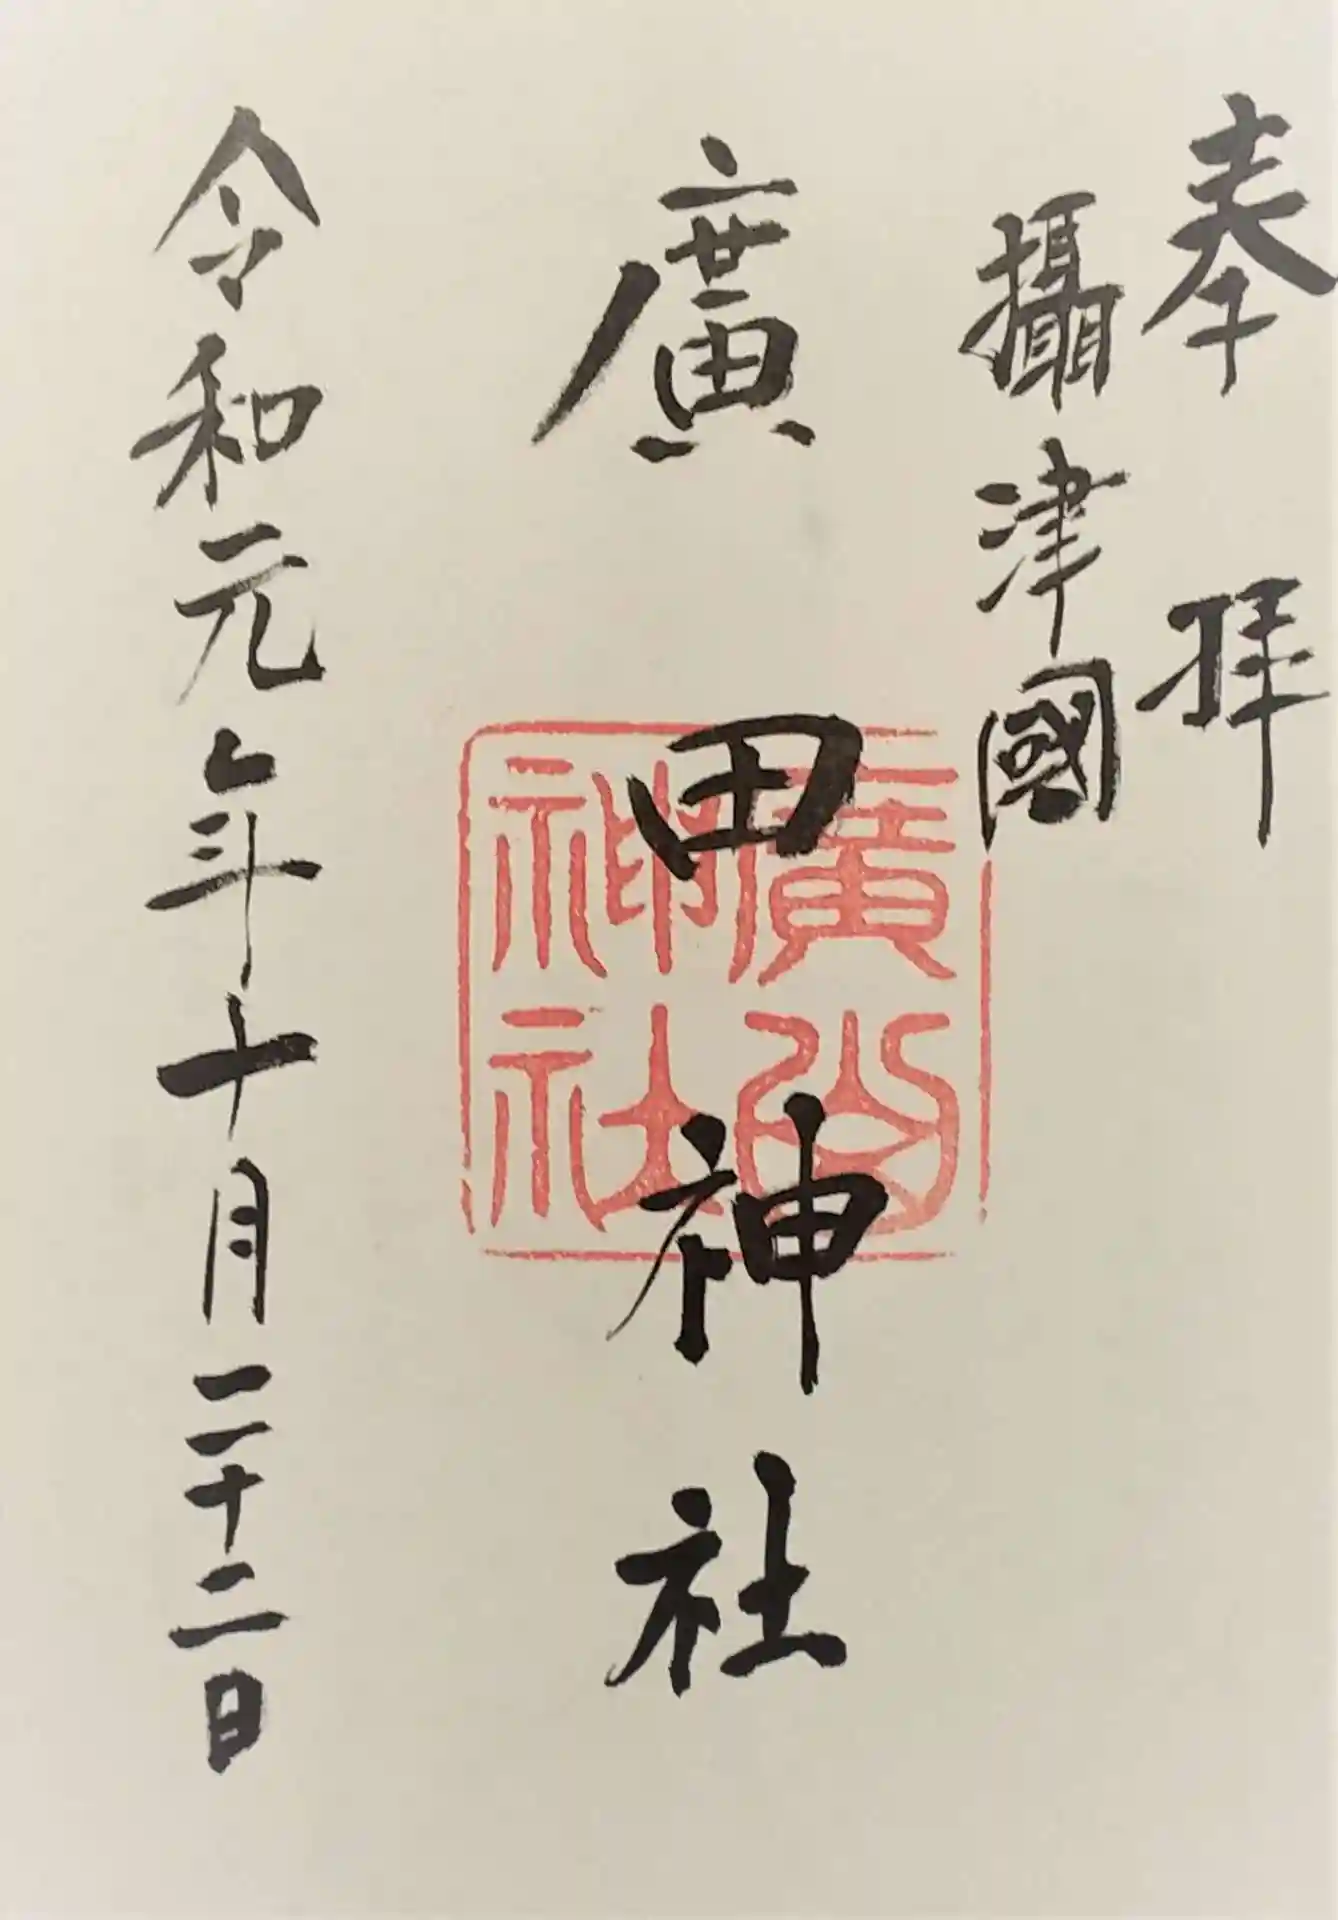 奉拝
攝津國
廣田神社
令和元年十月二十二日
廣
神社